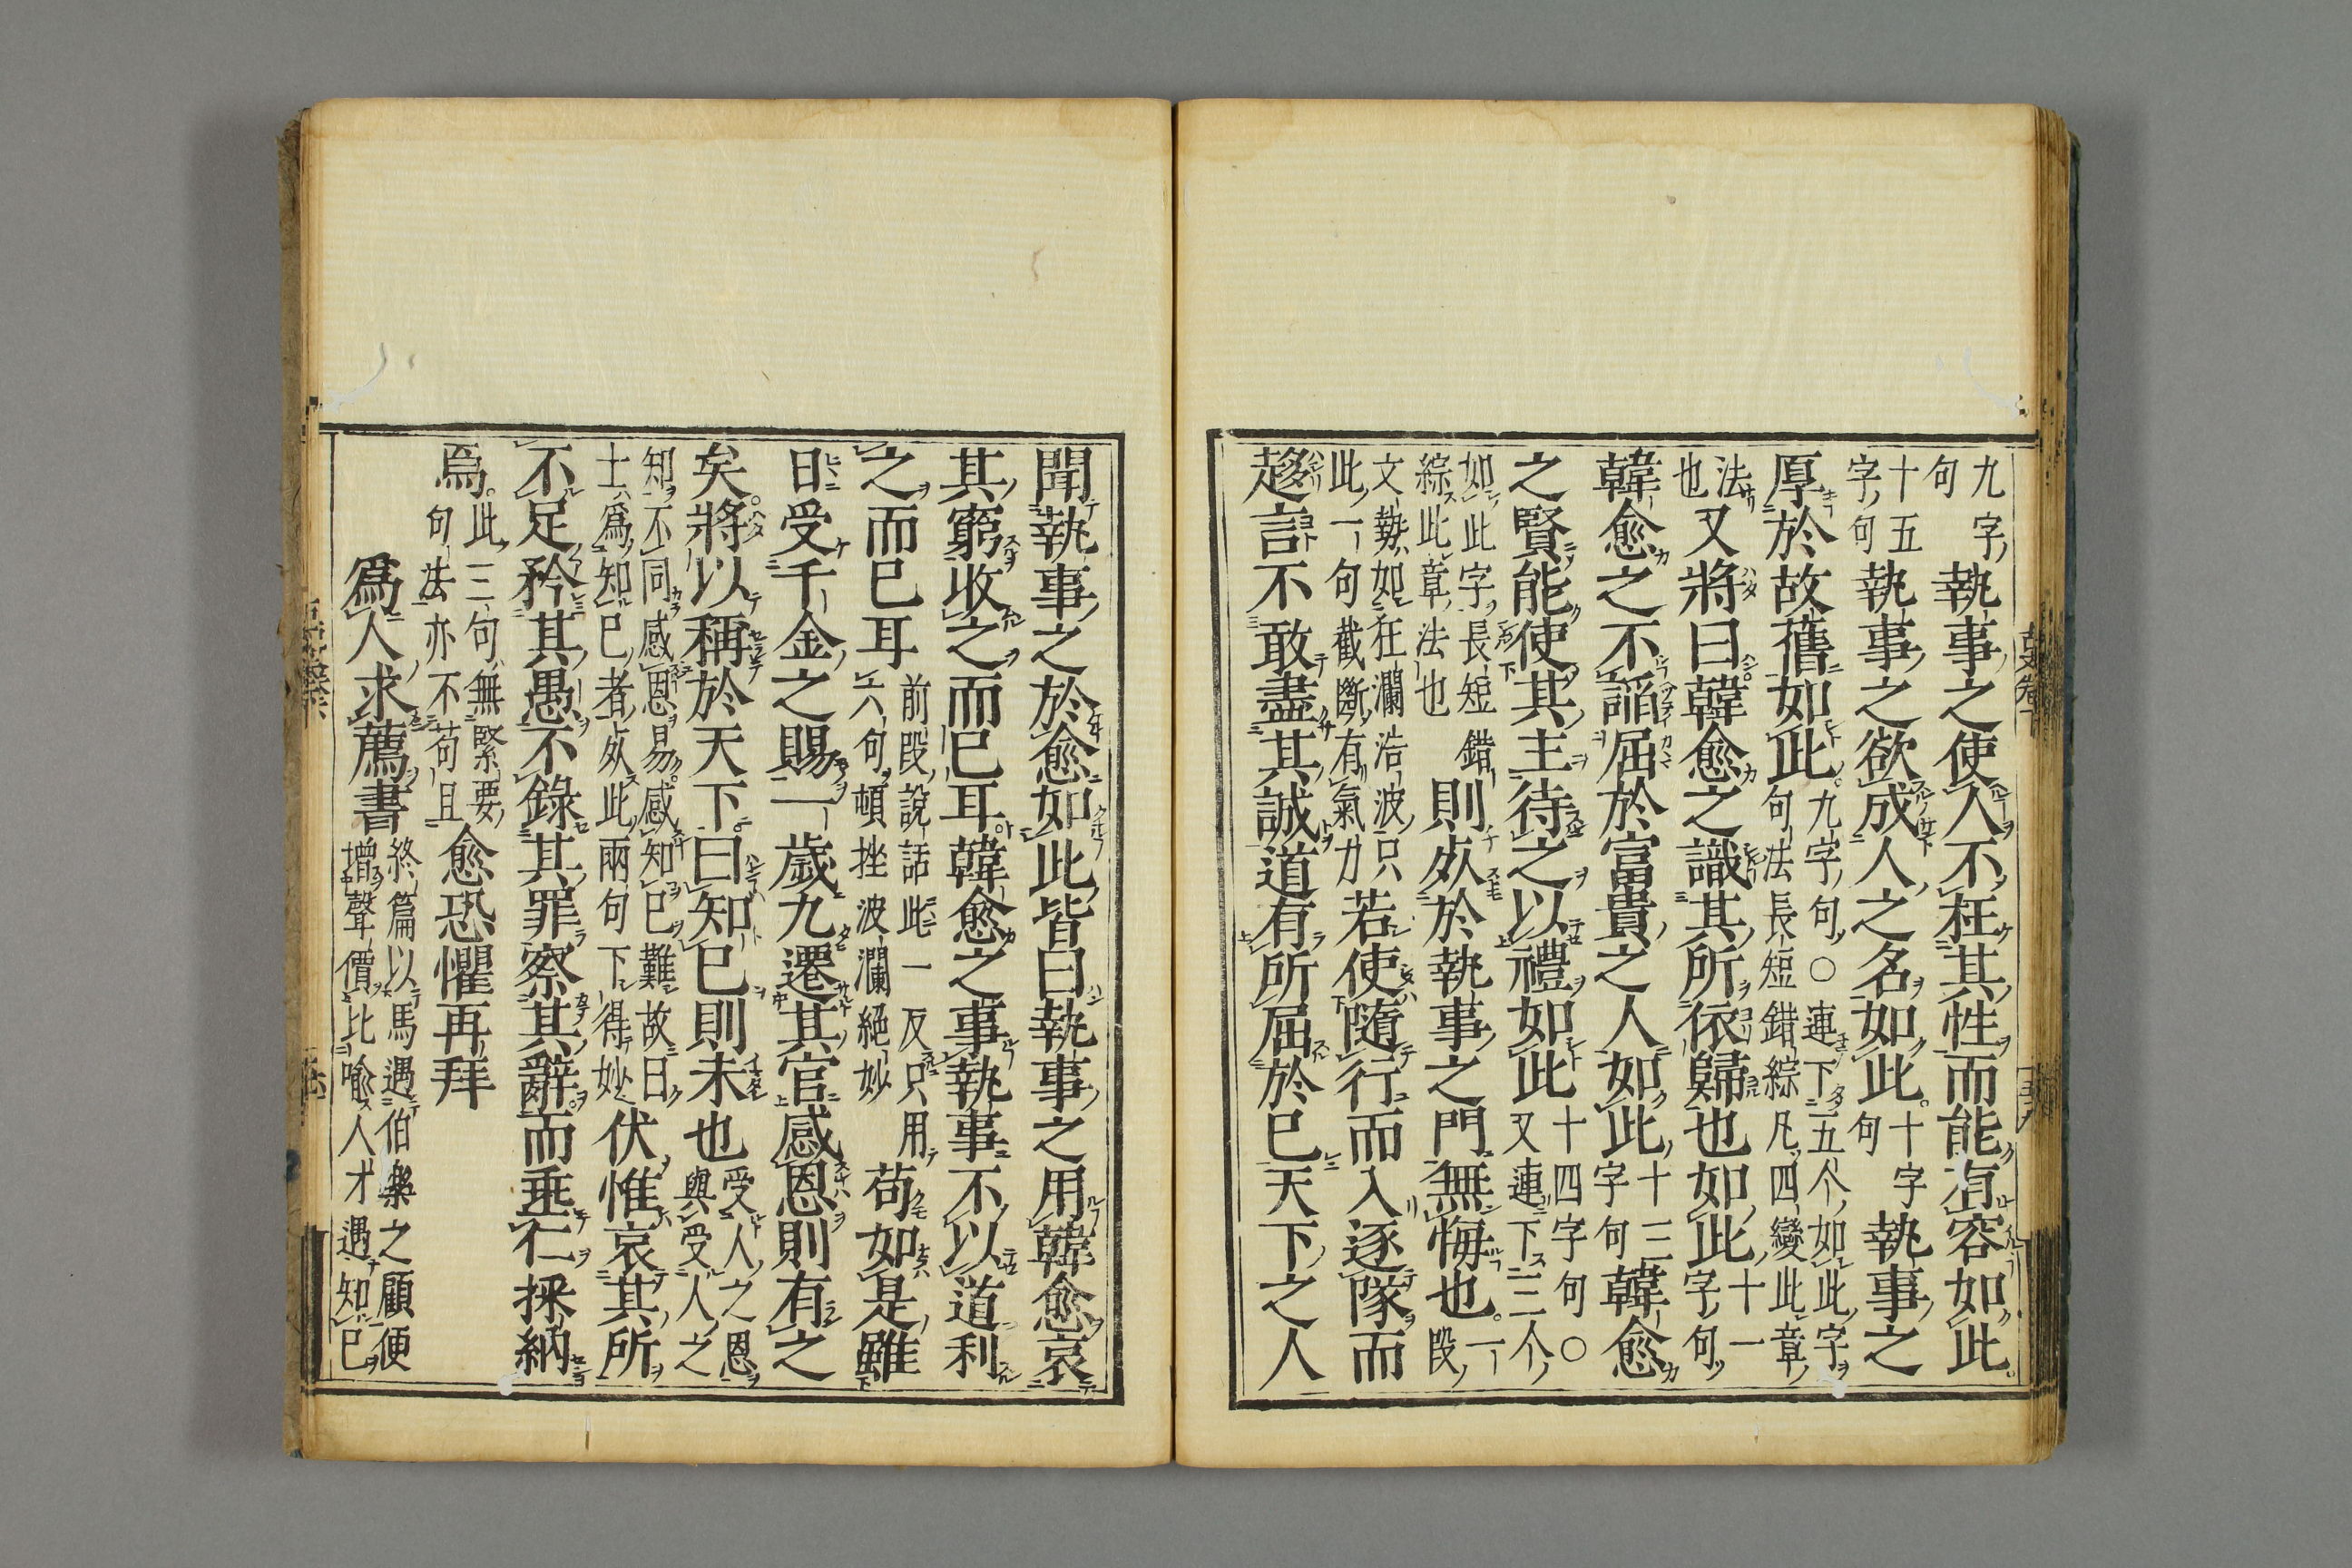 九字句執事之使人不枉其性而能有容如此。
十五字句執事之欲成人之名如此。十字句執事之
厚於故舊如此。九字句○連下五个如此字句法長短錯綜凡四變此章
法也又將曰韓愈之識其所依歸也如此十一字句
韓愈之不諂屈於富貴之人如此十三字句韓愈
之賢能使其主待之以禮如此十四字句○又連下三个
如此字長短錯綜此章法也則死於執事之門無悔也。一段
文勢如狂瀾浩波只此一句截斷有氣力若使隨行而入逐隊而
趍言不敢盡其誠道有所屈於已天下之人
聞執事之於愈如此皆曰執事之用韓愈哀
其窮收之而已耳韓愈之事執事不以道利
之而已耳前段說話此一反只用六句頓挫波瀾絕妙苟如是雖
日受千金之賜一歲九遷其官感恩則有之
矣。將以稱於天下曰知已則未也受人之恩與受人之
知不同感恩易感知已難故曰士爲知已者死此兩句下得妙伏惟哀其所
不足矜其愚不錄其罪察其辭而垂仁採納
焉。此三句無緊要句法亦不苟且愈恐懼再拜
爲人求薦書終篇以馬遇伯樂之顧便增聲價比喻人才遇知已